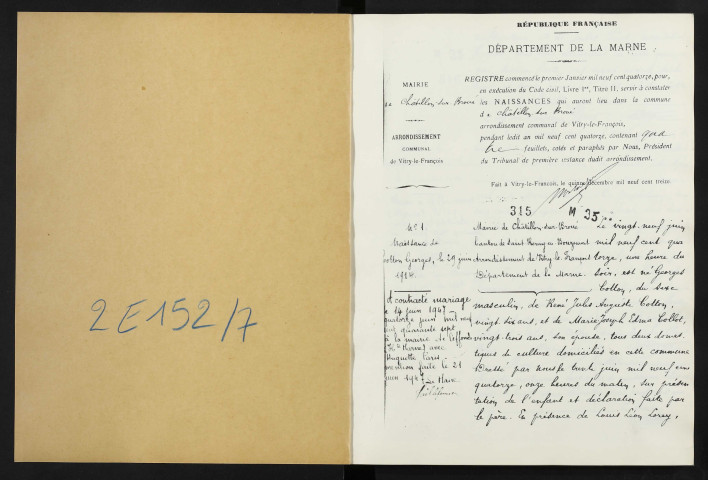 2 E 152/7
RÉPUBLIQUE FRANÇAISE
DÉPARTEMENT DE LA MARNE
MAIRIE
de Châtillon sur Broué
ARRONDISSEMENT
COMMUNAL
de Vitry-le-François
REGISTRE commencé le premier Janvier mil neuf cent quatorze, pour,
en exécution du Code civil, Livre Ier, Titre II, servir à constater
les NAISSANCES qui auront lieu dans la commune
de Châtillon sur Broué
arrondissement communal de Vitry-le-François,
pendant ledit an mil neuf cent quatorze, contenant quatre
feuillets, cotés et paraphés par Nous, Président
du Tribunal de première instance dudit arrondissement.
Fait à Vitry-le-François, le quinze décembre mil neuf cent treize.
315 M 35
No 1
Naissance de
Georges, le 29 juin
1914.
contracté mariage
le 14 juin 1947
quatorze juin mil neuf
cent quarante sept
à la mairie de
(Hte Marne) avec
Huguette Paris
mention faite le 21
juin 1947 Le Maire
Mairie de Châtillon-sur-Broué
Canton de Saint Remy en Bouzemont
Arrondissement de Vitry-le-François
Département de la Marne.
Le vingt-neuf juin
mil neuf cent qua
torze, une heure du
soir, est né Georges
du sexe
masculin, de René Jules Auguste
vingt six ans, et de Marie Joseph Edma
vingt trois ans, son épouse, tous deux domes
tiques de culture domiciliés en cette commune
Dressé par nous le trente juin mil neuf cent
quatorze, onze heures du matin, sur présen
tation de l'enfant et déclaration faite par
le père. En présence de Louis Léon